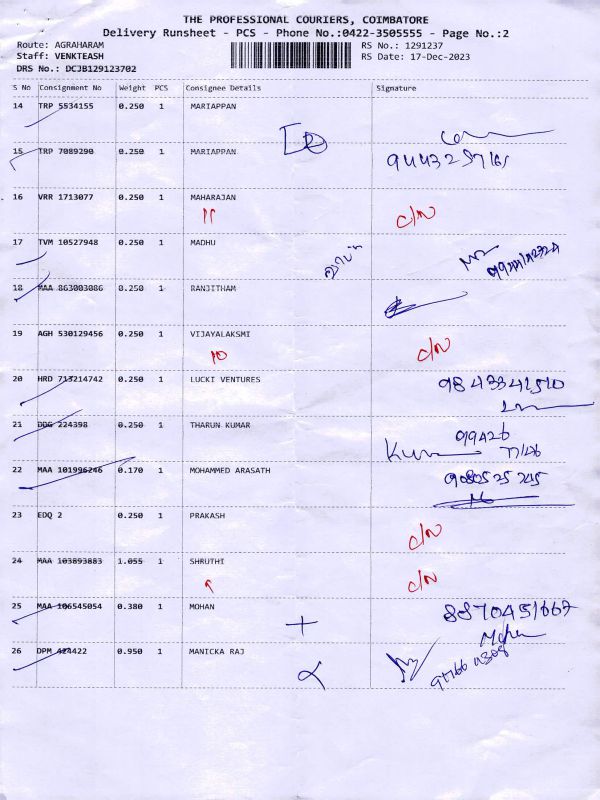 THE PROFESSIONAL COURIERS, COIMBATORE
Delivery Runsheet - PCS - Phone No.:0422-3505555 - Page No.:2
Route: AGRAHARAM RS No.: 1291237
Staff: VENKTEASH RS Date: 17-Dec-2023
DRS No.: DCJB129123702
S No Consignment No Weight PCS Consignee Details Signature
14 TRP 5534155 0.250 1 MARIAPPAN
15 TRP 7089290 0.250 1 MARIAPPAN
16 VRR 1713077 0.250 1 MAHARAJAN
c/N
17 TVM 10527948 0.250 1 MADHU
18 MAA 863003086 0.250 1 RANJITHAM
19 AGH 530129456 0.250 1 VIJAYALAKSMI
c/N
20 HRD 713214742 0.250 1 LUCKI VENTURES 9843341510
21 DDG 224398 0.250 1 THARUN KUMAR
22 MAA 101996246 0.170 1 MOHAMMED ARASATH
23 EDQ 2 0.250 1 PRAKASH
c/N
24 MAA 103893883 1.055 1 SHRUTHI
c/N
25 MAA 106545054 0.380 1 MOHAN 8870451667
26 DPM 424422 0.950 1 MANICKA RAJ